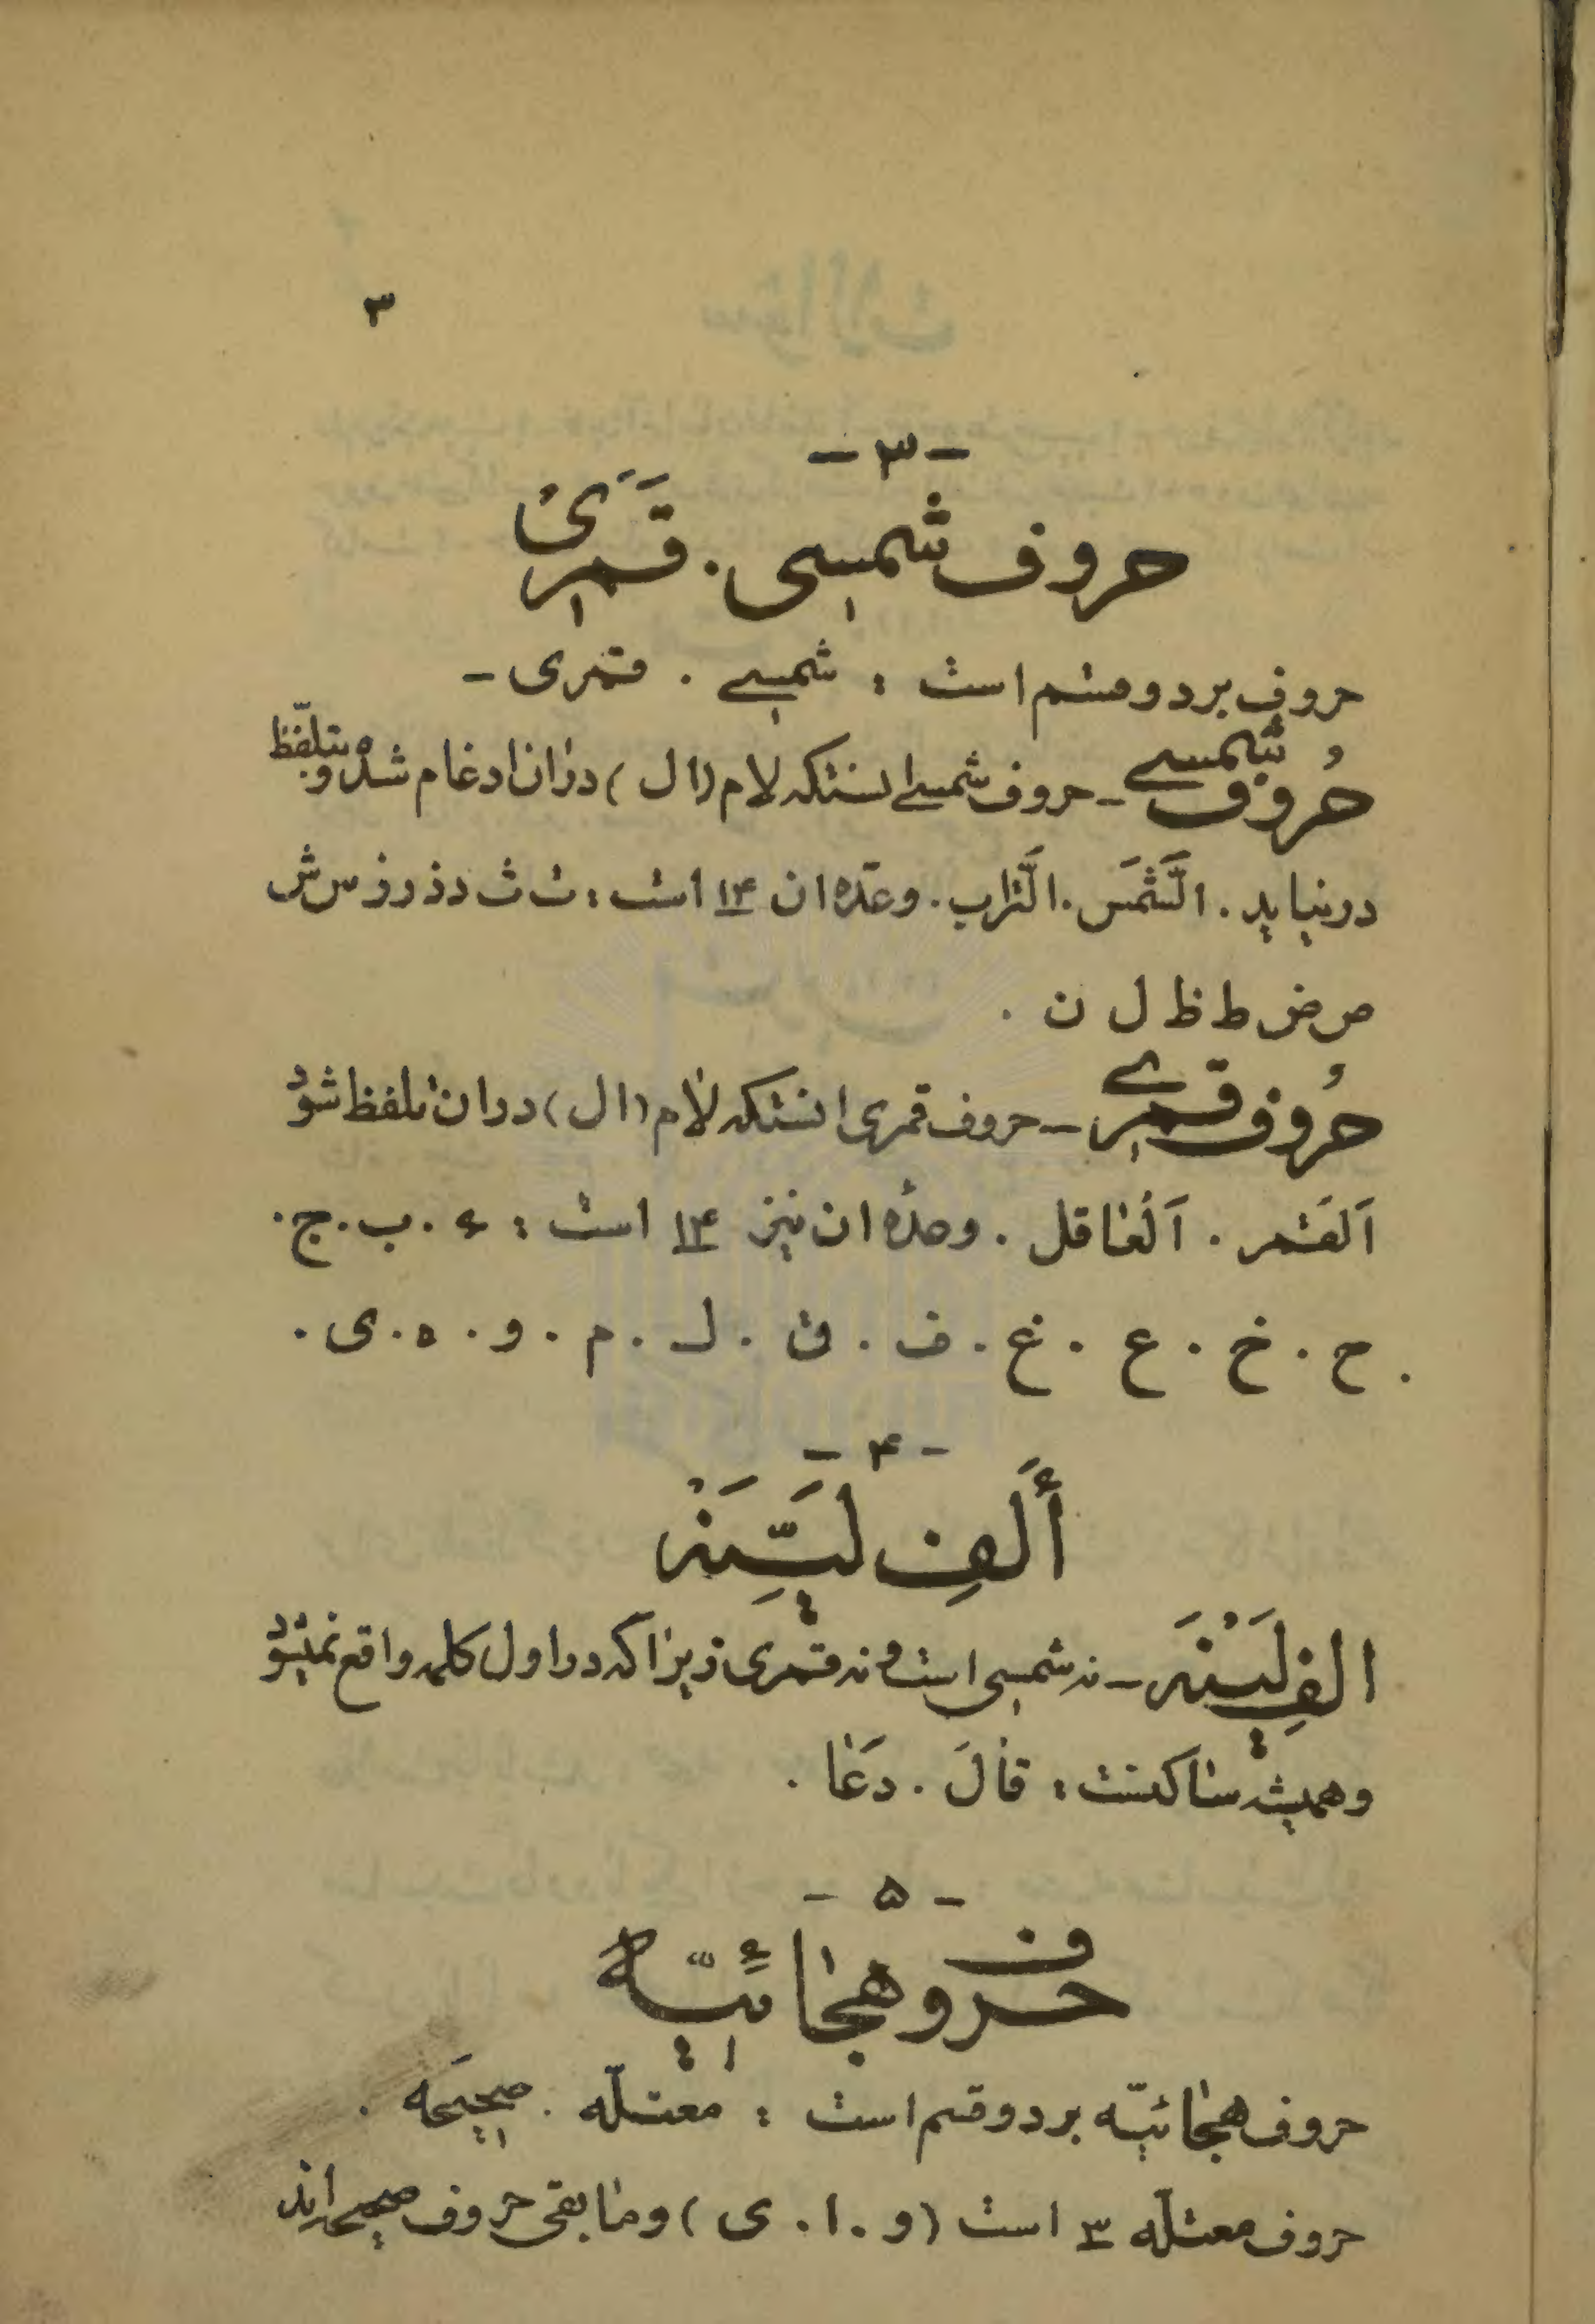 ۳
- ۳ -
حروف شمسی . قمری
حروف بر دو قسم است : شمسے . قمری -
حُروف شمسے - حروف شمسے انستکه لام (ال) در ان ادغام شده و بتلفّظ
در نیاید . الَشَّمَس . الَتَّراب . و عدّه ان ۱۴ است : ت ث د ذ ر ز س ش
ص ض ط ظ ل ن .
حُروف قمرے - حروف قمری انستکه لام (ال) در ان تلفظ شود
اَلقَمر . اَلعَاقل . و عدّه ان نیز ۱۴ است : ء . ب . ج .
. ح . خ . ع . غ . ف . ق . ك . م . و . ه . ی .
- ۴ -
أَلَفِ لَیِّنَه
الفِ لَیَنَه - نه شمسی است و نه قمری زیرا که در اول کلمه واقع نمیشود
و همیشه ساکنست : قالَ . دَعَا .
- ۵ -
حروف هجائیّه
حروف هجائیّه بر دو قسم است : معتلّه . صحیحَه .
حروف معتلّه ۳ است (و . ا . ی) و مابقی حروف صحیحه اند